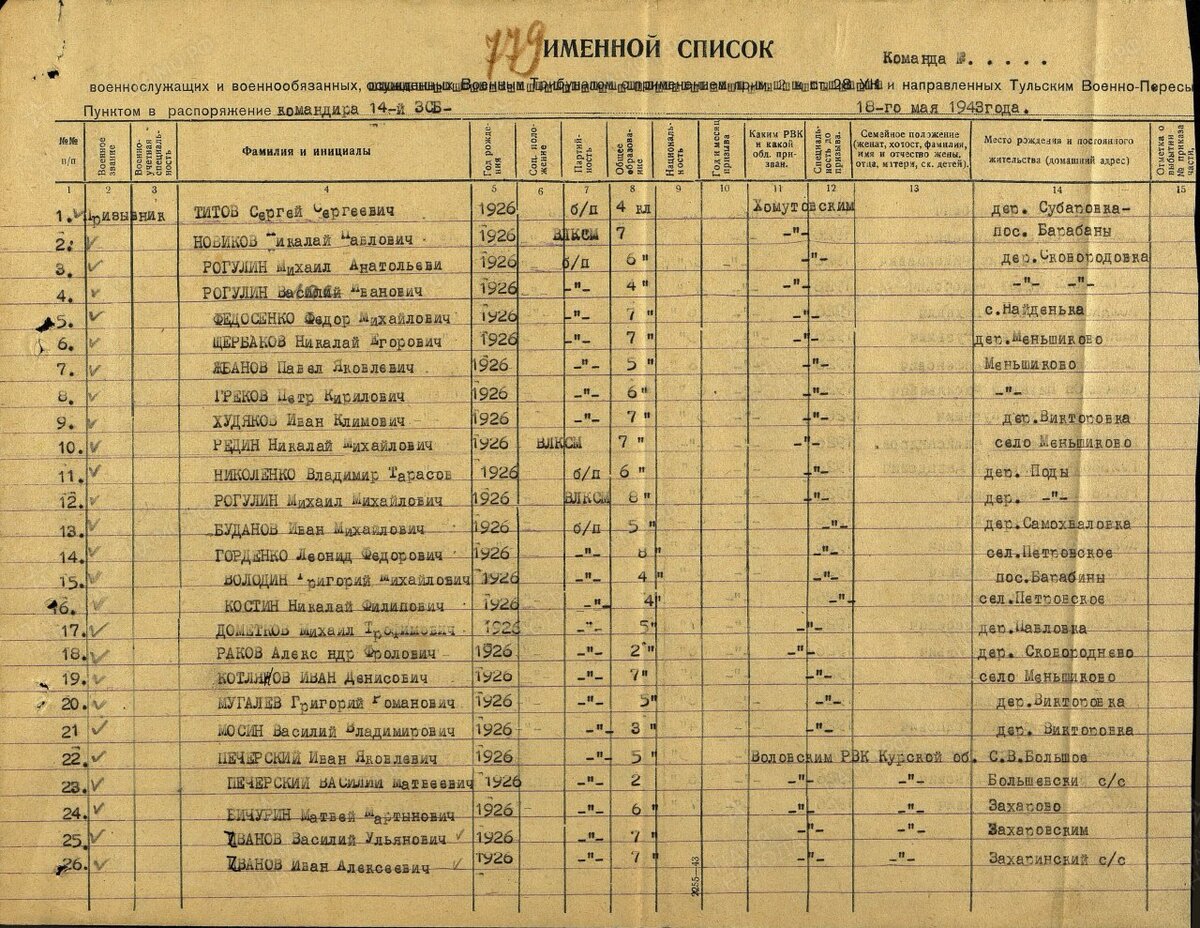 779 ИМЕННОЙ СПИСОК
Команда №. . . . .
военнослужащих и военнообязанных, осужденных Военным Трибуналом с применением прим. 2 к ст. 28 УК и направленных Тульским Военно-Пересы
Пунктом в распоряжение командира 14-й ЗСБ- 18-го мая 1943года.
№№ п/п Военное звание Военно-учетная специальность Фамилия и инициалы Год рождения Соц. положение Партийность Общее образование Национальность Год и месяц призыва Каким РВК и какой обл. призван. Специальность до призыва. Семейное положение (женат, холост, фамилия, имя и отчество жены, отца, матери, ск. детей). Место рождения и постоянного жительства (домашний адрес) Отметка о выбытии № приказа части,
1 2 3 4 5 6 7 8 9 10 11 12 13 14 15
1. Призывник ТИТОВ Сергей Сергеевич 1926 б/п 4 кл Хомутовским дер. Субаровка-
2. НОВИКОВ Николай Павлович 1926 ВЛКСМ 7 -"- пос. Барабаны
3. РОГУЛИН Михаил Анатольеви 1926 б/п 6 " -"- дер.Сковородовка
4. РОГУЛИН Василий Иванович 1926 -"- 4 " -"- -"- -"-
5. ФЕДОСЕНКО Федор Михайлович 1926 -"- 7 " -"- с.Найденька
6. ЩЕРБАКОВ Николай Егорович 1926 -"- 7 " -"- дер.Меньшиково
7. ЖБАНОВ Павел Яковлевич 1926 -"- 5 " -"- Меньшиково
8. ГРЕКОВ Петр Кирилович 1926 -"- 6 " -"- -"-
9. ХУДЯКОВ Иван Климович 1926 -"- 7 " -"- дер.Викторовка
10. РЕДИН Николай Михайлович 1926 ВЛКСМ 7 " -"- село Меньшиково
11. НИКОЛЕНКО Владимир Тарасов 1926 б/п 6 " -"- дер. Поды
12. РОГУЛИН Михаил Михайлович 1926 ВЛКСМ 8 " -"- дер. -"-
13. БУДАНОВ Иван Михайлович 1926 б/п 5 " -"- дер.Самохваловка
14. ГОРДЕНКО Леонид Федорович 1926 -"- 8 " -"- сел.Петровское
15. ВОЛОДИН Григорий Михайлович 1926 -"- 4 " -"- пос.Барабины
16. КОСТИН Николай Филипович 1926 -"- 4" -"- сел.Петровское
17. ДОМЕТКОВ Михаил Трофимович 1926 -"- 5" -"- дер.Павловка
18. РАКОВ Алекс ндр Фролович 1926 -"- 2" -"- дер. Сковороднево
19. КОТЛЯРОВ ИВАН Денисович 1926 -"- 7" -"- село Меньшиково
20. МУГАЛЕВ Григорий Романович 1926 -"- 5" -"- дер.Викторовка
21 МОСИН Василий Владимирович 1926 -"- 3 " -"- дер. Викторовка
22. ПЕЧЕРСКИЙ Иван Яковлевич 1926 -"- 5 " Воловским РВК Курской об. С.В.Большое
23. ПЕЧЕРСКИЙ ВАСИЛИЙ Матвеевич 1926 -"- 2 -"- -"- Большевски с/с
24. БИЧУРИН Матвей Мартынович 1926 -"- 6 " -"- -"- Захарово
25. ИВАНОВ Василий Ульянович 1926 -"- 7 " -"- -"- Захаровским
26. ИВАНОВ Иван Алексеевич 1926 -"- 7 " -"- -"- Захаринский с/с
2255—43